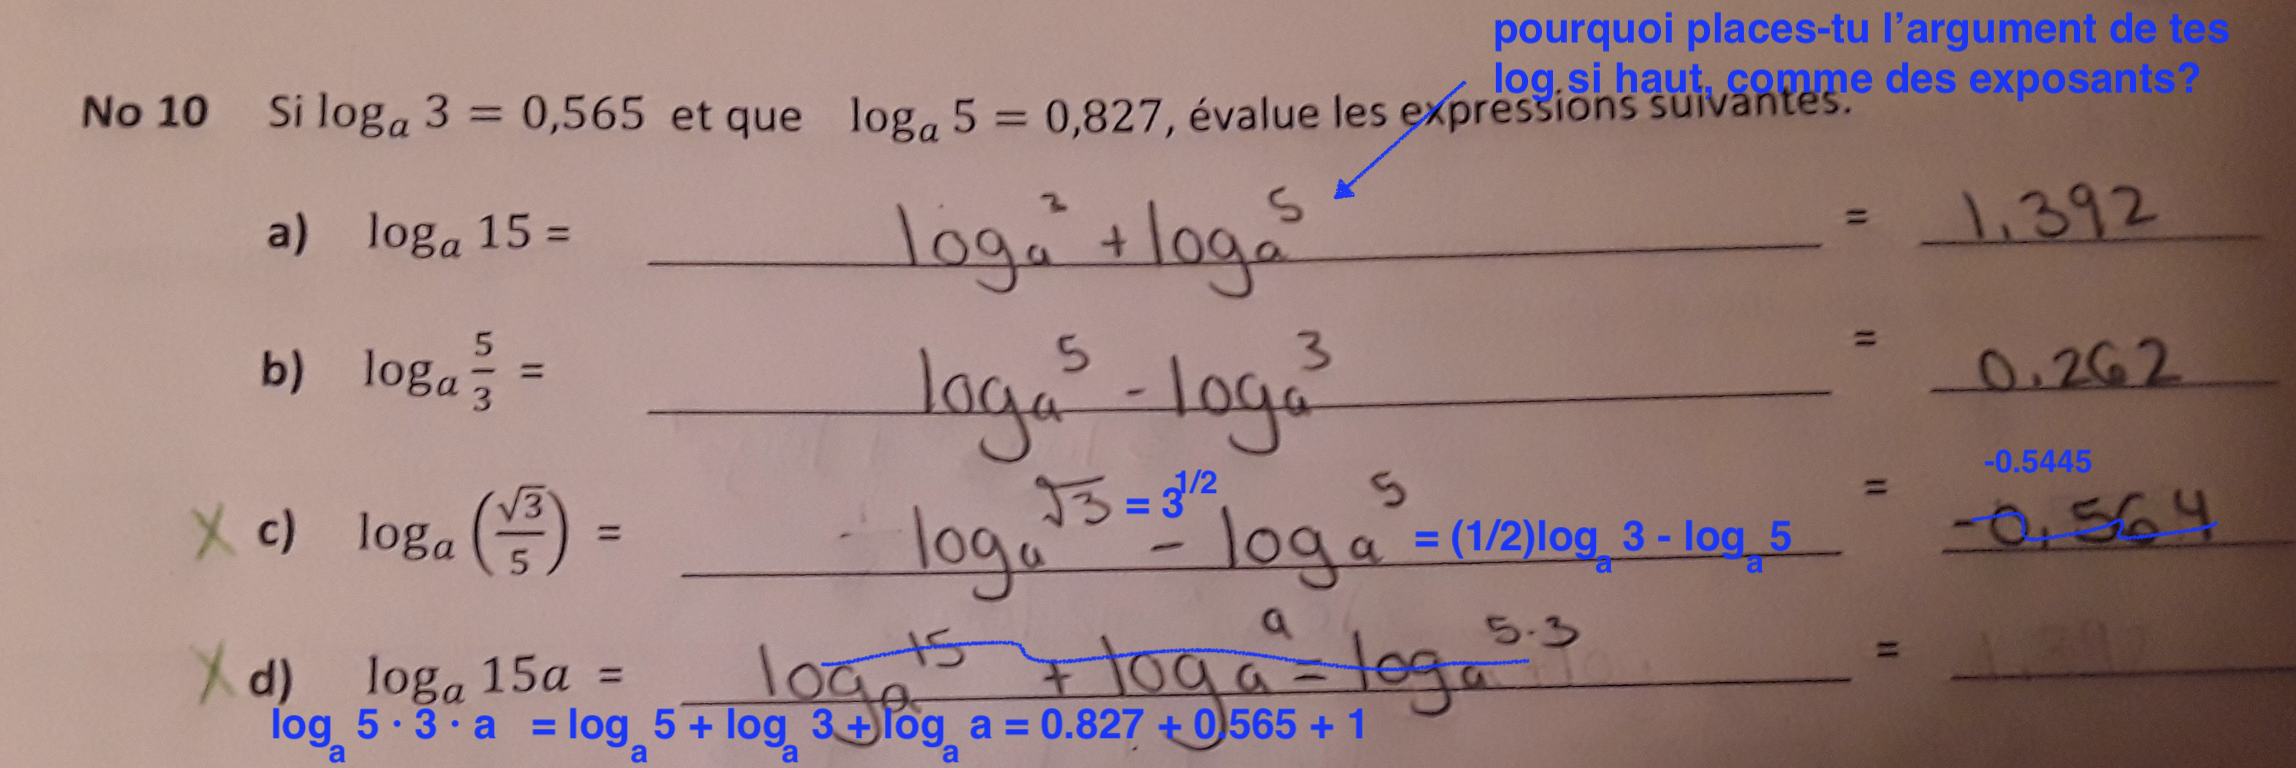 pourquoi places-tu l'argument de tes
log si haut, comme des exposants?
No 10 Si logₐ 3 = 0,565 et que logₐ 5 = 0,827, évalue les expressions suivantes.
a) logₐ 15 = logₐ³ + logₐ⁵ = 1.392
b) logₐ 5/3 = logₐ⁵ - logₐ³ = 0.262
-0.5445
X c) logₐ (√3/5) = logₐ √3 = 3^1/2 - logₐ⁵ = (1/2)logₐ 3 - logₐ 5 = -0,564
X d) logₐ 15a = logₐ¹⁵ + logₐ^a = logₐ^5·3 =
logₐ 5 · 3 · a = logₐ 5 + logₐ 3 + logₐ a = 0.827 + 0.565 + 1